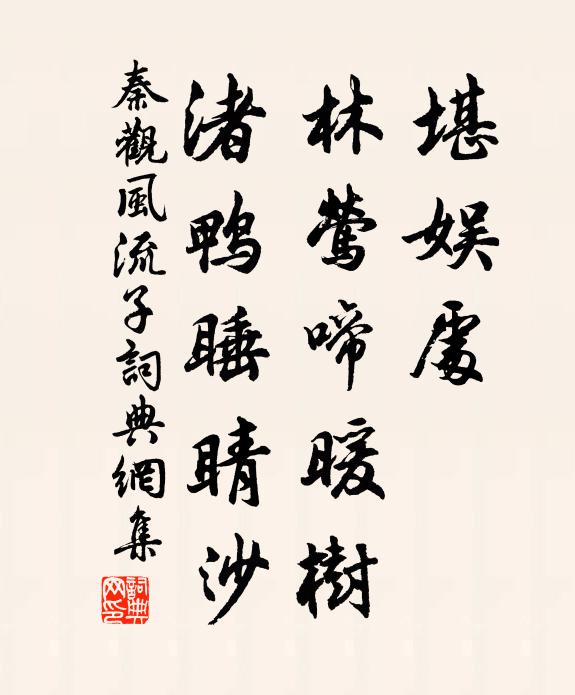 堪娱處
林鶯啼暖樹
渚鸭睡晴沙
秦觀風流子詞典網集
詞典
网印